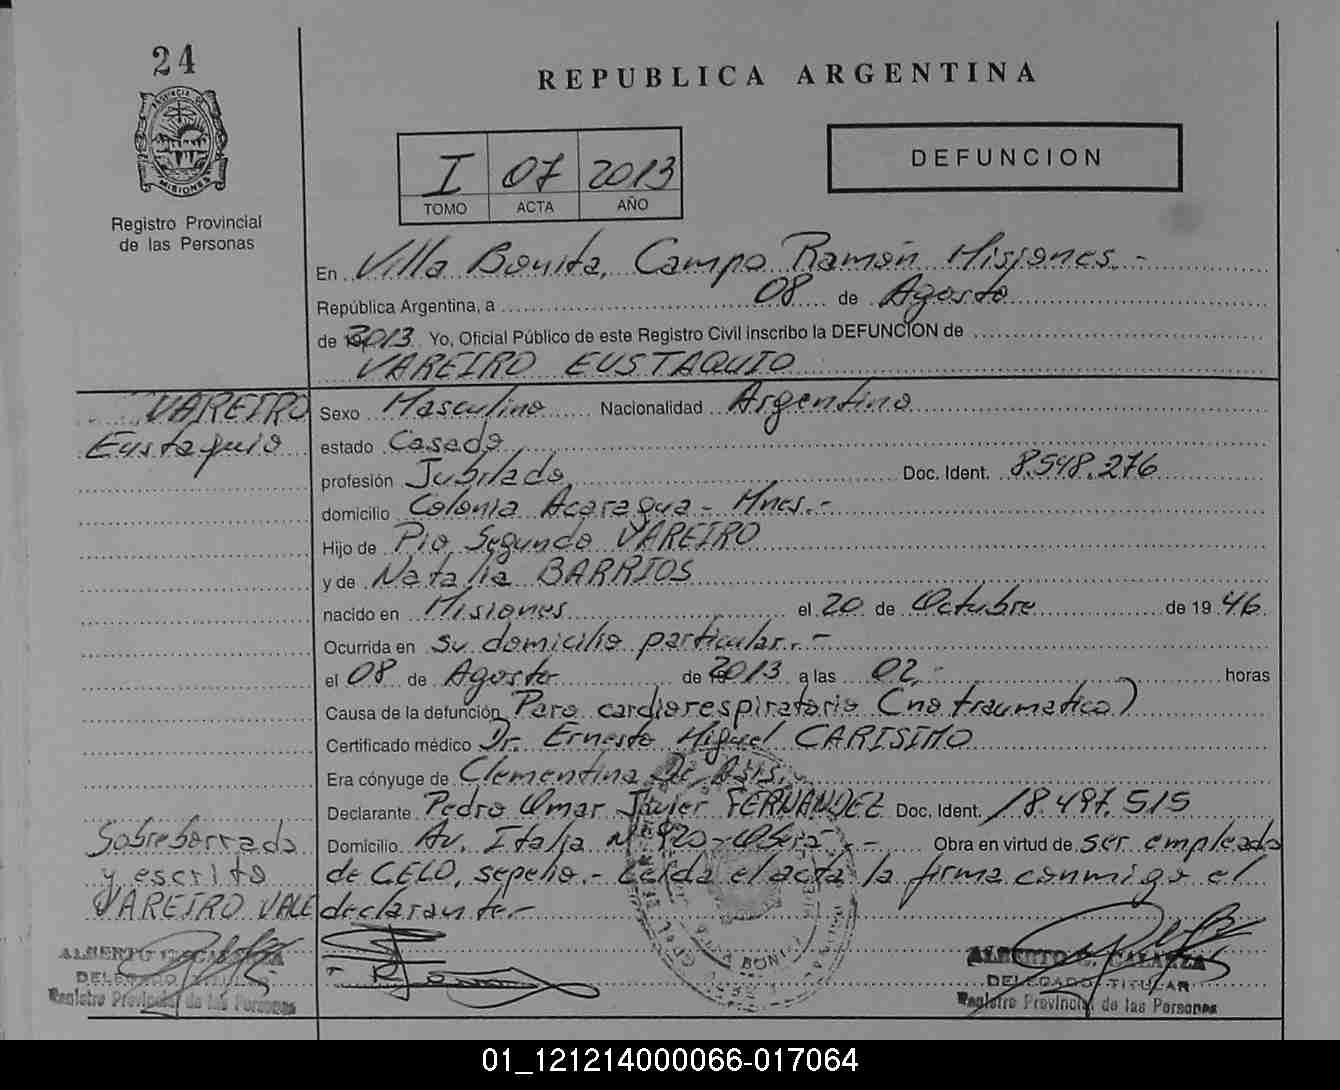 24
REPUBLICA ARGENTINA
PROVINCIA DE
MISIONES
Registro Provincial
de las Personas
I 07 2013
TOMO ACTA AÑO
DEFUNCION
En Villa Bonita, Campo Ramón Misiones.-
República Argentina, a 08 de Agosto
de 2013 Yo, Oficial Público de este Registro Civil inscribo la DEFUNCION de
VAREIRO EUSTAQUIO
VAREIRO
Eustaquio
Sexo Masculino Nacionalidad Argentino
estado Casado
profesión Jubilado, Doc. Ident. 8.548.276
domicilio Colonia Acaragua - Mnes.-
Hijo de Pio Segundo VAREIRO
y de Natalia BARRIOS
nacido en Misiones el 20 de Octubre de 1946
Ocurrida en su domicilio particular.-
el 08 de Agosto de 2013 a las 02.- horas
Causa de la defunción Paro cardiorespiratorio (no traumatico)
Certificado médico Dr. Ernesto Miguel CARISIMO
Era cónyuge de Clementina De Asis.
Declarante Pedro Omar Javier FERNANDEZ Doc. Ident. 18.497.515
Domicilio Av. Italia Nº 920-Oberá.- Obra en virtud de ser empleado
de CELO, sepelio.- Leída el acta la firma conmigo el
declarante.-
Sobreborrado
y escrito
VAREIRO VALE
ALBERTO
DELEGADO TITULAR
Registro Provincial de las Personas
VILLA BONITA
ALBERTO
DELEGADO TITULAR
Registro Provincial de las Personas
01_121214000066-017064